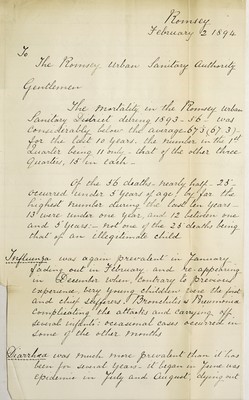 Romsey
February 2 1894
To
The Romsey Urban Sanitary Authority
Gentlemen
The Mortality in the Romsey Urban
Sanitary District during 1893 - 56 - was
considerably below the average 67.3 (67.3) -
for the last 10 years, the number in the 1st
quarter being 11 only - that of the other three
Quarters, 15 in each -
Of the 56 deaths - nearly half - 25 -
occurred under 5 years of age, by far the
highest number during the last ten years -
13 were under one year, and 12 between one
and 5 years - not one of the 25 deaths being
that of an illegitimate child
Influenza was again prevalent in January
fading out in February and re-appearing
in December when, contrary to previous
experience, very young children were the first
and chief sufferers, Bronchitis & Pneumonia
complicating the attacks and carrying off
several infants: occasional cases occurred in
some of the other months
Diarrhoea was much more prevalent than it has
been for several years - it began in June was
epidemic in July and August, dying out